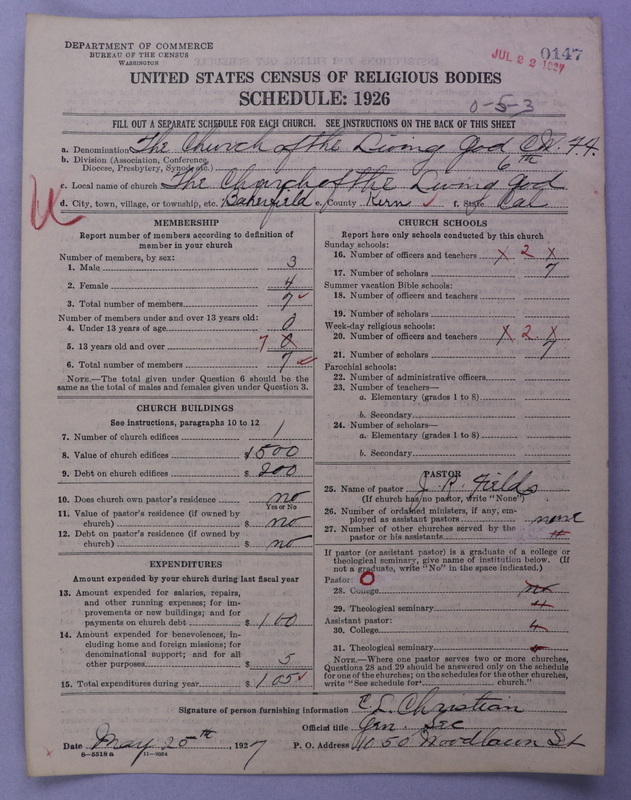 DEPARTMENT OF COMMERCE
BUREAU OF THE CENSUS
WASHINGTON
JUL 22 1927
0147
UNITED STATES CENSUS OF RELIGIOUS BODIES
SCHEDULE: 1926
0-5-3
FILL OUT A SEPARATE SCHEDULE FOR EACH CHURCH. SEE INSTRUCTIONS ON THE BACK OF THIS SHEET
a. Denomination The Church of the Living God C.W. F.F.
b. Division (Association, Conference, Diocese, Presbytery, Synod, etc.) 6th
c. Local name of church The Church of the Living God
d. City, town, village, or township, etc. Bakerfield e. County Kern f. State Cal
MEMBERSHIP
Report number of members according to definition of member in your church
Number of members, by sex:
1. Male 3
2. Female 4
3. Total number of members 7
Number of members under and over 13 years old:
4. Under 13 years of age 0
5. 13 years old and over 7 0
6. Total number of members 7
NOTE.—The total given under Question 6 should be the same as the total of males and females given under Question 3.
CHURCH BUILDINGS
See instructions, paragraphs 10 to 12
7. Number of church edifices 1
8. Value of church edifices $1500
9. Debt on church edifices $ 200
10. Does church own pastor's residence no
Yes or No
11. Value of pastor's residence (if owned by church) $ no
12. Debt on pastor's residence (if owned by church) $ no
EXPENDITURES
Amount expended by your church during last fiscal year
13. Amount expended for salaries, repairs, and other running expenses; for improvements or new buildings; and for payments on church debt $ 100
14. Amount expended for benevolences, including home and foreign missions; for denominational support; and for all other purposes $ 5
15. Total expenditures during year $ 105
CHURCH SCHOOLS
Report here only schools conducted by this church
Sunday schools:
16. Number of officers and teachers X 2 X
17. Number of scholars 7
Summer vacation Bible schools:
18. Number of officers and teachers
19. Number of scholars
Week-day religious schools:
20. Number of officers and teachers X 2 X
21. Number of scholars 7
Parochial schools:
22. Number of administrative officers
23. Number of teachers—
a. Elementary (grades 1 to 8)
b. Secondary
24. Number of scholars—
a. Elementary (grades 1 to 8)
b. Secondary
PASTOR
25. Name of pastor J. R. Fields
(If church has no pastor, write "None")
26. Number of ordained ministers, if any, employed as assistant pastors none
27. Number of other churches served by the pastor or his assistants "
If pastor (or assistant pastor) is a graduate of a college or theological seminary, give name of institution below. (If not a graduate, write "No" in the space indicated.)
Pastor: 0
28. College no
29. Theological seminary "
Assistant pastor:
30. College "
31. Theological seminary "
NOTE.—Where one pastor serves two or more churches, Questions 28 and 29 should be answered only on the schedule for one of the churches; on the schedules for the other churches, write "See schedule for church."
Signature of person furnishing information E. L. Christian
Official title Gen. Sec
Date May 25th, 1927 P. O. Address 1050 Woodlawn St
8-5518 a 11-9084